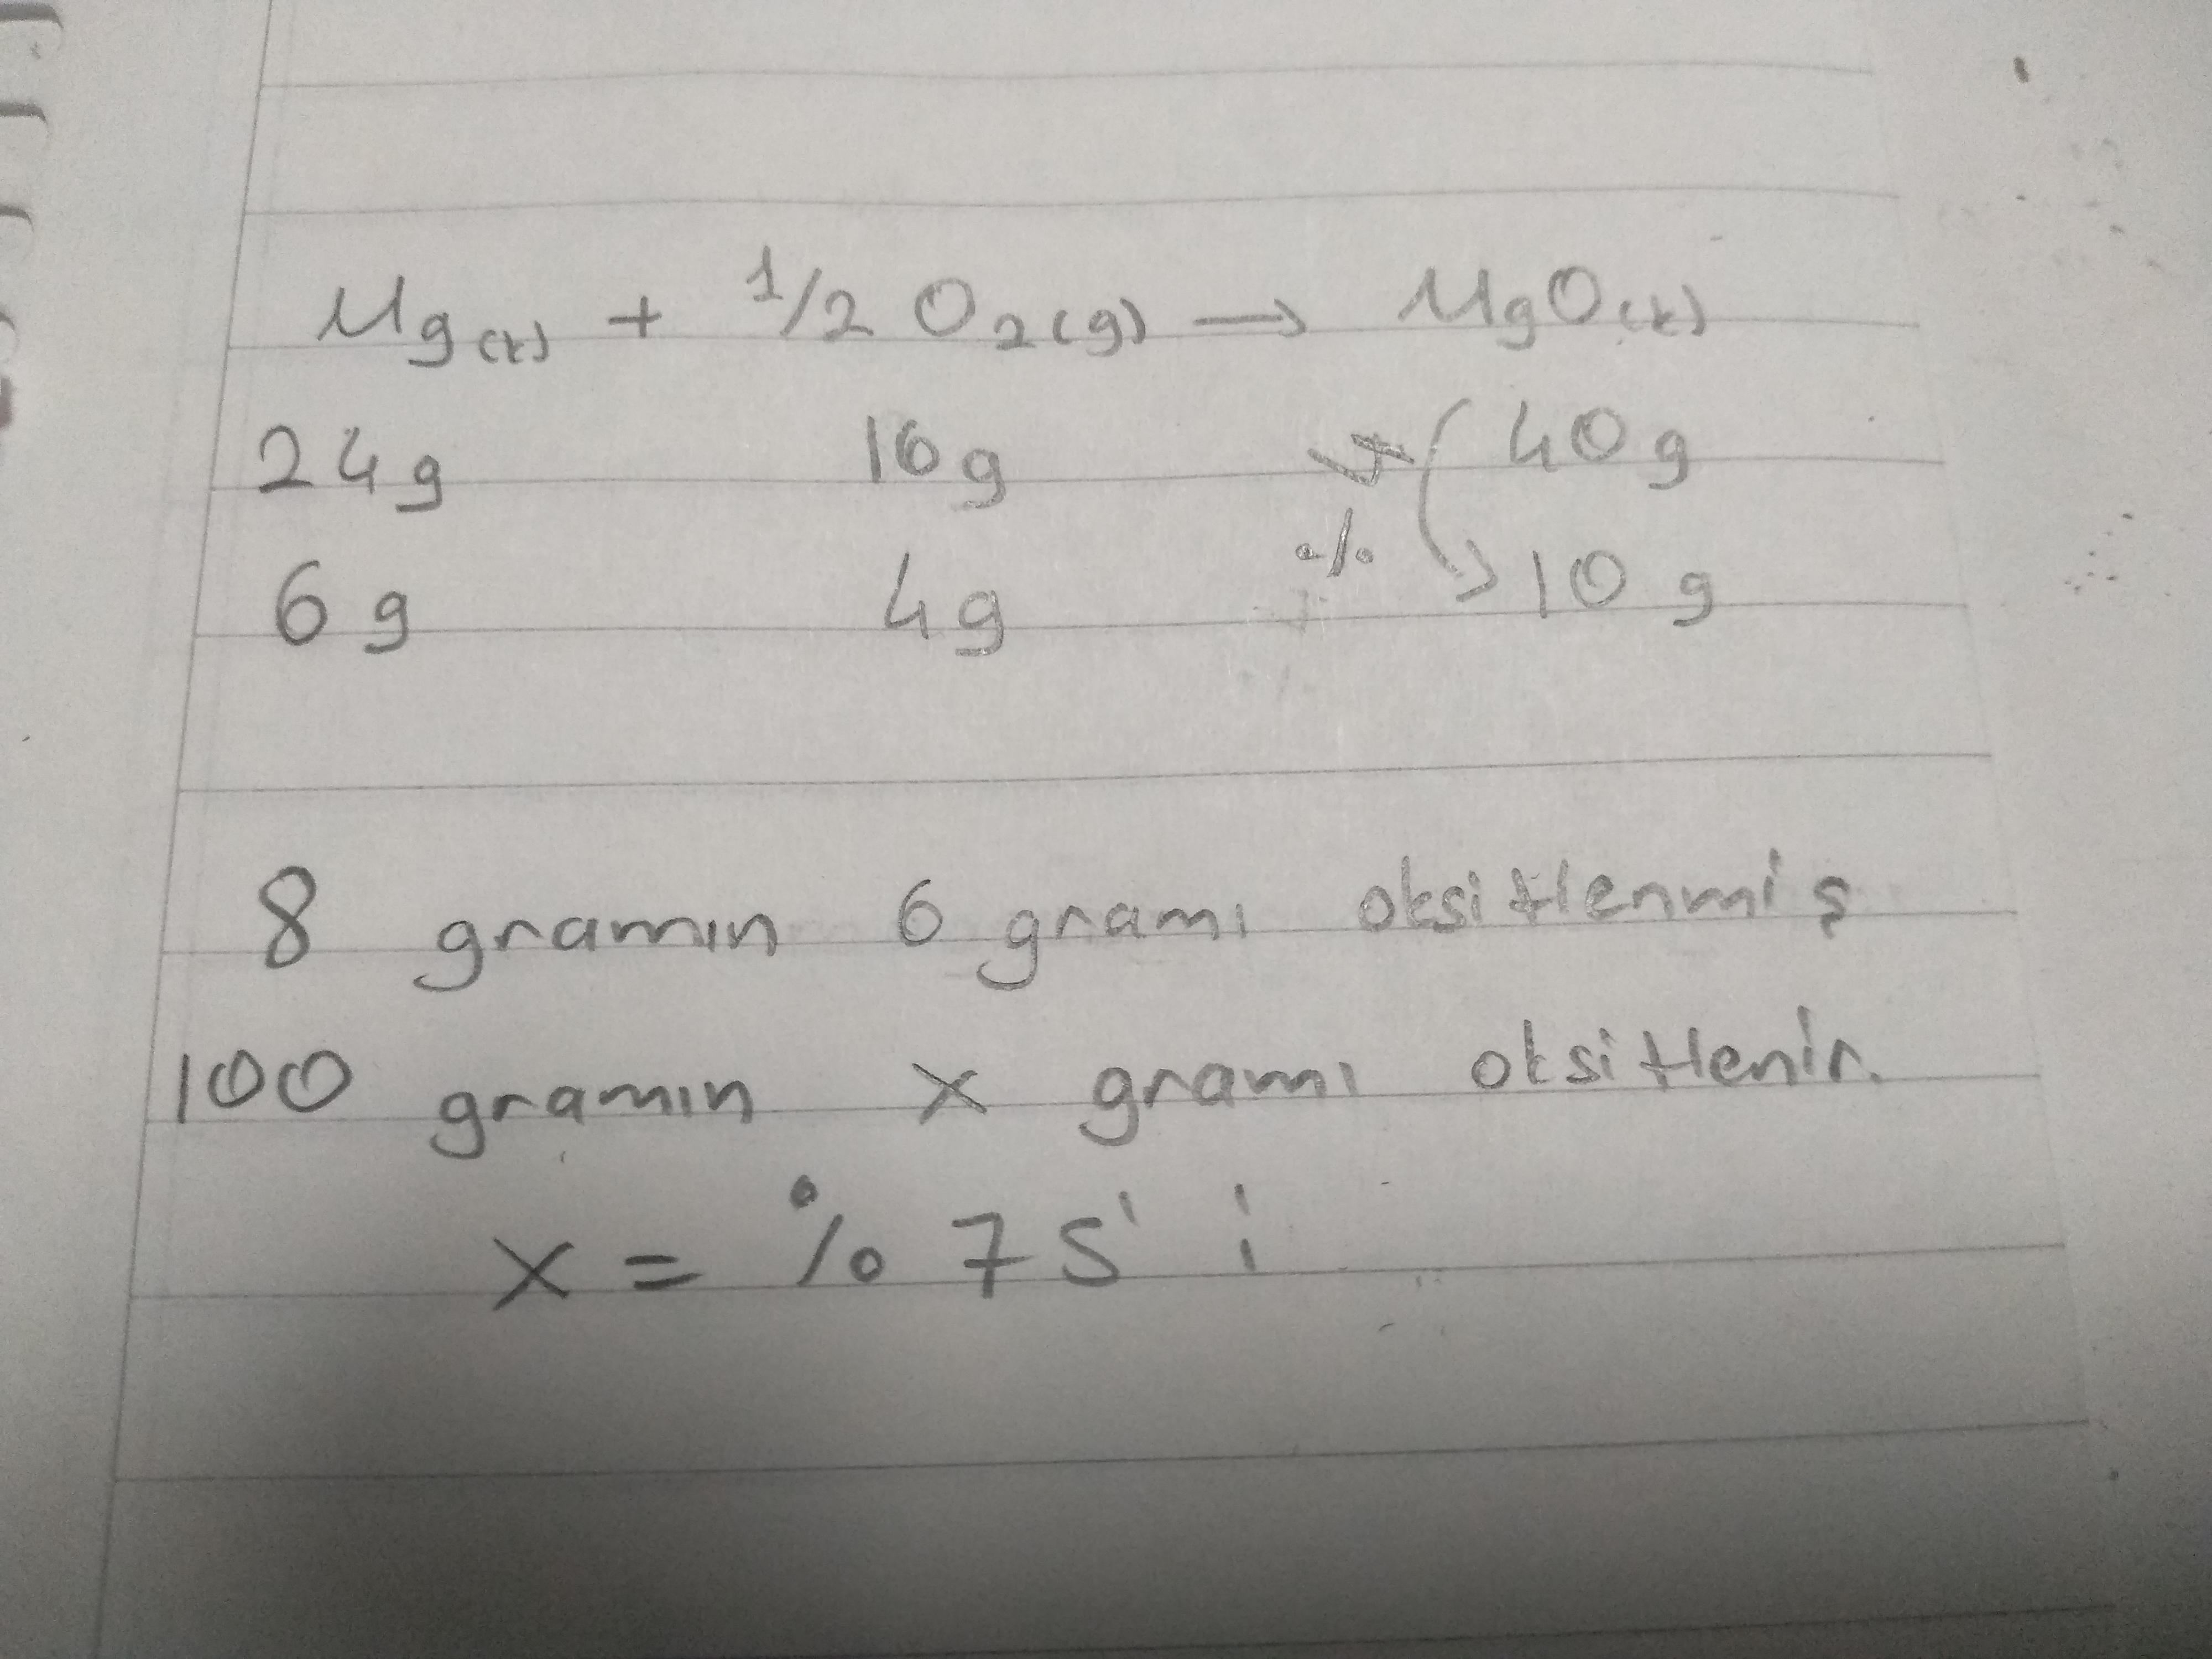 Mg(k) + 1/2 O2(g) → MgO(k)
24g 16g 40g
6g 4g % 10g
8 gramın 6 gramı oksitlenmiş
100 gramın x gramı oksitlenir.
x = % 75'i